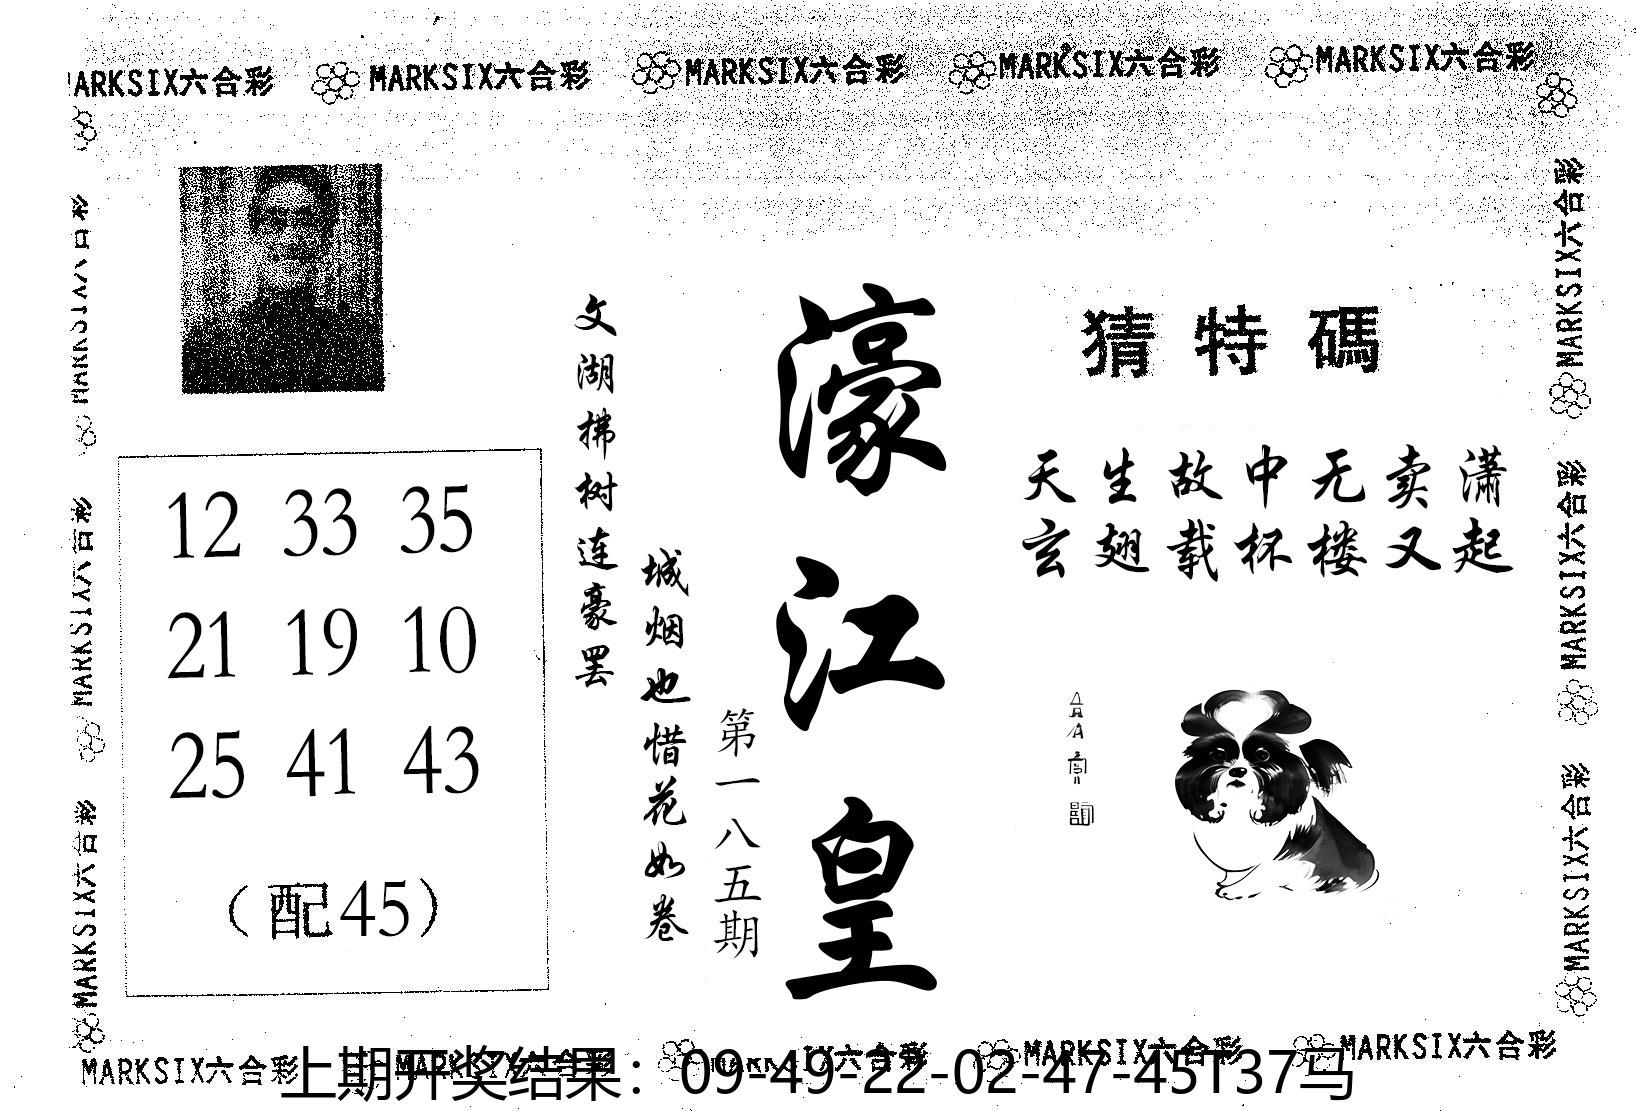 MARKSIX六合彩 MARKSIX六合彩 MARKSIX六合彩 MARKSIX六合彩 MARKSIX六合彩
猜特碼
天生故中无卖潇
玄翅载杯楼又起
濠江皇
第一八五期
城烟也惜花如卷
文湖拂树连豪罢
12 33 35
21 19 10
25 41 43
（配45）
MARKSIX六合彩
MARKSIX六合彩
MARKSIX六合彩
MARKSIX六合彩
MARKSIX六合彩
MARKSIX六合彩
MARKSIX六合彩 MARKSIX六合彩 MARKSIX六合彩 MARKSIX六合彩 MARKSIX六合彩
上期开奖结果：09-49-22-02-47-45T37马